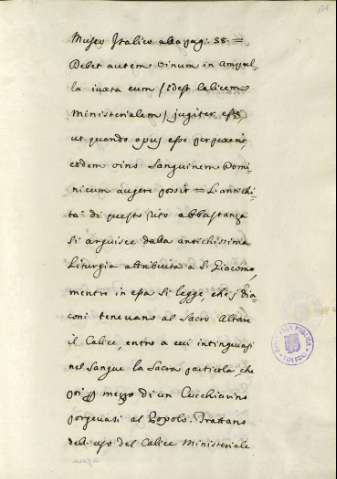 Museo Italico alla pag. 58. =
Debet autem Vinum in ampul-
la iuxta eum (idest Calicem
Ministerialem) jugiter esse
ut quando opus esse
eodem vino Sanguinem Domi-
nicum augeri possit = L'antichi-
tà di questo rito abbastanza
si arguisce dalla antichissima
Liturgia attribuita a S. Giacomo,
mentre in essa si legge, che i Dia
coni tenevano al Sacro Altare
il Calice, entro a cui intingevasi
nel Sangue la Sacra particola, che
poi mezzo di un Cucchiarino
porgevasi al Popolo. Trattano
dell'uso del Calice Ministeriale